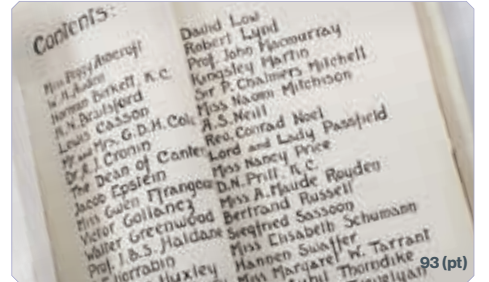 Contents:
Miss Peggy Ashcroft
W.H. Auden
Norman Birkett, K.C.
H.N. Brailsford
Lewis Casson
Mr. and Mrs. G.D.H. Cole
Dr. A.J. Cronin
The Dean of Canter
Jacob Epstein
Miss Gwen Ffrangcon
Victor Gollancz
Walter Greenwood
Prof. J.B.S. Haldane
Horrabin
Huxley
David Low
Robert Lynd
Prof. John Macmurray
Kingsley Martin
Sir P. Chalmers Mitchell
Miss Naomi Mitchison
A.S. Neill
Rev. Conrad Noel
Lord and Lady Passfield
Miss Nancy Price
D.N. Pritt, K.C.
Miss A. Maude Royden
Bertrand Russell
Siegfried Sassoon
Miss Elisabeth Schumann
Hannen Swaffer
Miss Margaret W. Tarrant
Sybil Thorndike
Trevelyan
93 (pt)